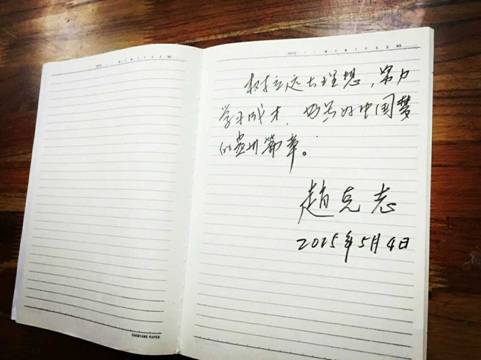 树立远大理想，努力
学习成才，书写好中国梦
的贵州篇章。
赵克志
2015年5月4日